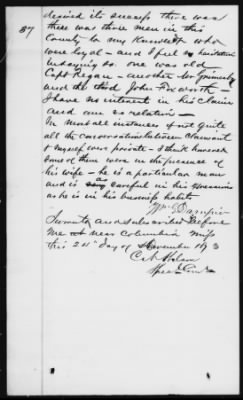 57
desired its success there was
there was three men in this
County to my Knowledge who
were loyal - and I feel no hesitation
in saying so. one was old
Capt Regan - another Mr
and the third John Foxworth -
I have no interest in his Claim
and am no relation -
In most all instances if not quite
all the conversations between claimant
& myself were private - I think however
some of them were in the presence of
his wife - he is a particular man
and is as careful in his
as he is in his business habits
Wm
Sworn to and subscribed before
me at near Columbia Miss
this 21st day of November 1873
Special Com